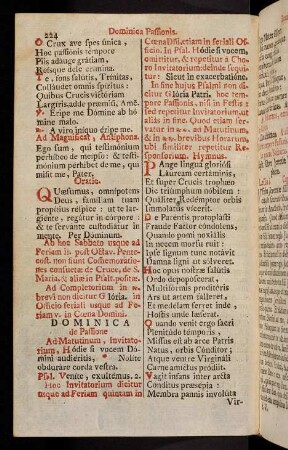 224
Dominica Passionis.
O Crux ave spes unica,
Hoc passionis tempore
Piis adauge gratiam,
Reisque dele crimina.
Te, fons salutis, Trinitas,
Collaudet omnis spiritus:
Quibus Crucis victoriam
Largiris, adde præmiũ, Amẽ.
℣. Eripe me Domine ab ho
mine malo.
℟. A viro iniquo eripe me.
Ad Magnificat, Antiphona.
Ego sum, qui testimónium
perhibeo de meipso: & testi-
mónium perhibet de me, qui
misit me, Pater.
Oratio.
Quæsumus, omnipotens
Deus, familiam tuam
propitius respice: ut te lar-
giente, regatur in corpore:
& te servante custodiatur in
mente. Per Dominum.
Ab hoc Sabbato usque ad
Feriam iv. post Octav. Pente-
cost. non fiunt Commemoratio-
nes consuetæ de Cruce, de S.
Maria, & aliæ in Psalt. positæ.
Ad Completorium in ℟.
brevi non dicitur Gloria. in
Officio feriali usque ad Fe-
riam v. in Cœna Domini.
DOMINICA
de Passione
Ad Matutinum, Invitato-
rium, Hódie si vocem Dó-
mini audiéritis, * Nolite
obdurare corda vestra.
Psal. Venite, exultémus. 2.
Hoc Invitatorium dicitur
usque ad Feriam quintam in
Cœna Dñi, etiam in feriali Offi-
cio. In Psal. Hódie si vocem,
omittitur, & repetitur à Cho-
ro Invitatorium, deinde sequi-
tur: Sicut in exacerbatióne.
In fine hujus Psalmi non di-
citur Glória Patri, hoc tem-
pore Passionis, nisi in Festis
sed repetitur Invitatorium, ut
aliàs in fine. Quod etiam ser-
vatur in ℟. ad Matutinum,
& in ℟. brevibus Horarum,
ubi similiter repetitur Re-
sponsorium. Hymnus.
Pange lingua gloriósi
Láuream certáminis,
Et super Crucis trophæo
Dic triúmphum nóbilem
Quáliter Redémptor orbis
Immolátus vícerit.
De Parentis protoplásti
Fraude Factor condolens,
Quando pomi noxiális
In necem morsu ruit:
Ipse lignum tunc notávit
Damna ligni ut sólveret.
Hoc opus nostræ salútis
Ordo depopóscerat,
Multifórmis proditóris
Ars ut artem fálleret,
Et medélam ferret inde,
Hostis unde læserat.
Quando venit ergo sacri
Plenitúdo témporis,
Missus est ab arce Patris
Natus, orbis Cónditor:
Atque ventre Virgináli
Carne amíctus pródiit.
Vagit infans inter arcta
Cónditus præsépia:
Membra pannis involúta
Vir-